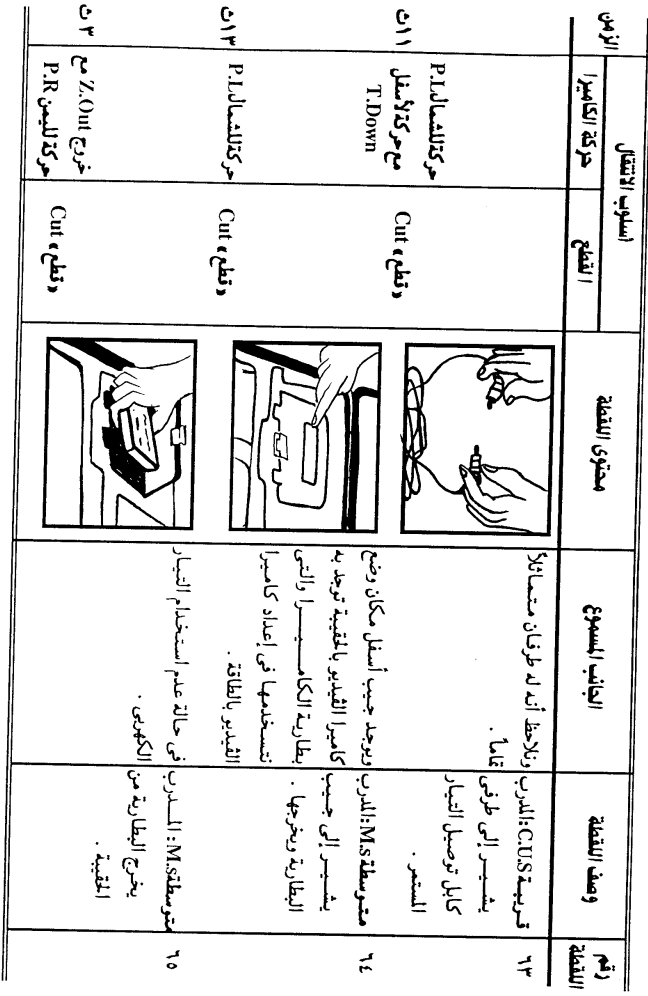 رقم
اللقطة
وصف اللقطة
الجانب المسموع
محتوى اللقطة
اسلوب الانتقال
القطع
حركة الكاميرا
الزمن
٦٣
قريبة C.U.S: المدرب
يشير إلى طرفى
كابل توصيل التيار
المستمر .
ونلاحظ أنه له طرفان متماثلاً
تماماً .
«قطع» Cut
حركة للشمال P.L
مع حركة لأسفل
T.Down
١١ ث
٦٤
متوسطة M.s: المدرب
يشير إلى جيب
البطارية ويخرجها .
ويوجد جيب أسفل مكان وضع
كاميرا الفيديو بالحقيبة توجد به
بطارية الكاميرا والتى
نستخدمها فى إعداد كاميرا
الفيديو بالطاقة .
«قطع» Cut
حركة للشمال P.L
١٣ ث
٦٥
متوسطة M.s: المدرب
يخرج البطارية من
الحقيبة .
فى حالة عدم استخدام التيار
الكهربى .
«قطع» Cut
خروج Z.Out مع
حركة لليمن P.R
٣ ث